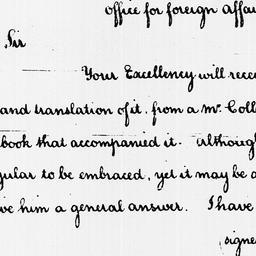 office for foreign Affai
Sir
Your Excellency will rece
and translation of it, from a Mr. Coll
book that accompanied it. Although
gular to be embraced, yet it may be a
ve him a general answer. I have
signe